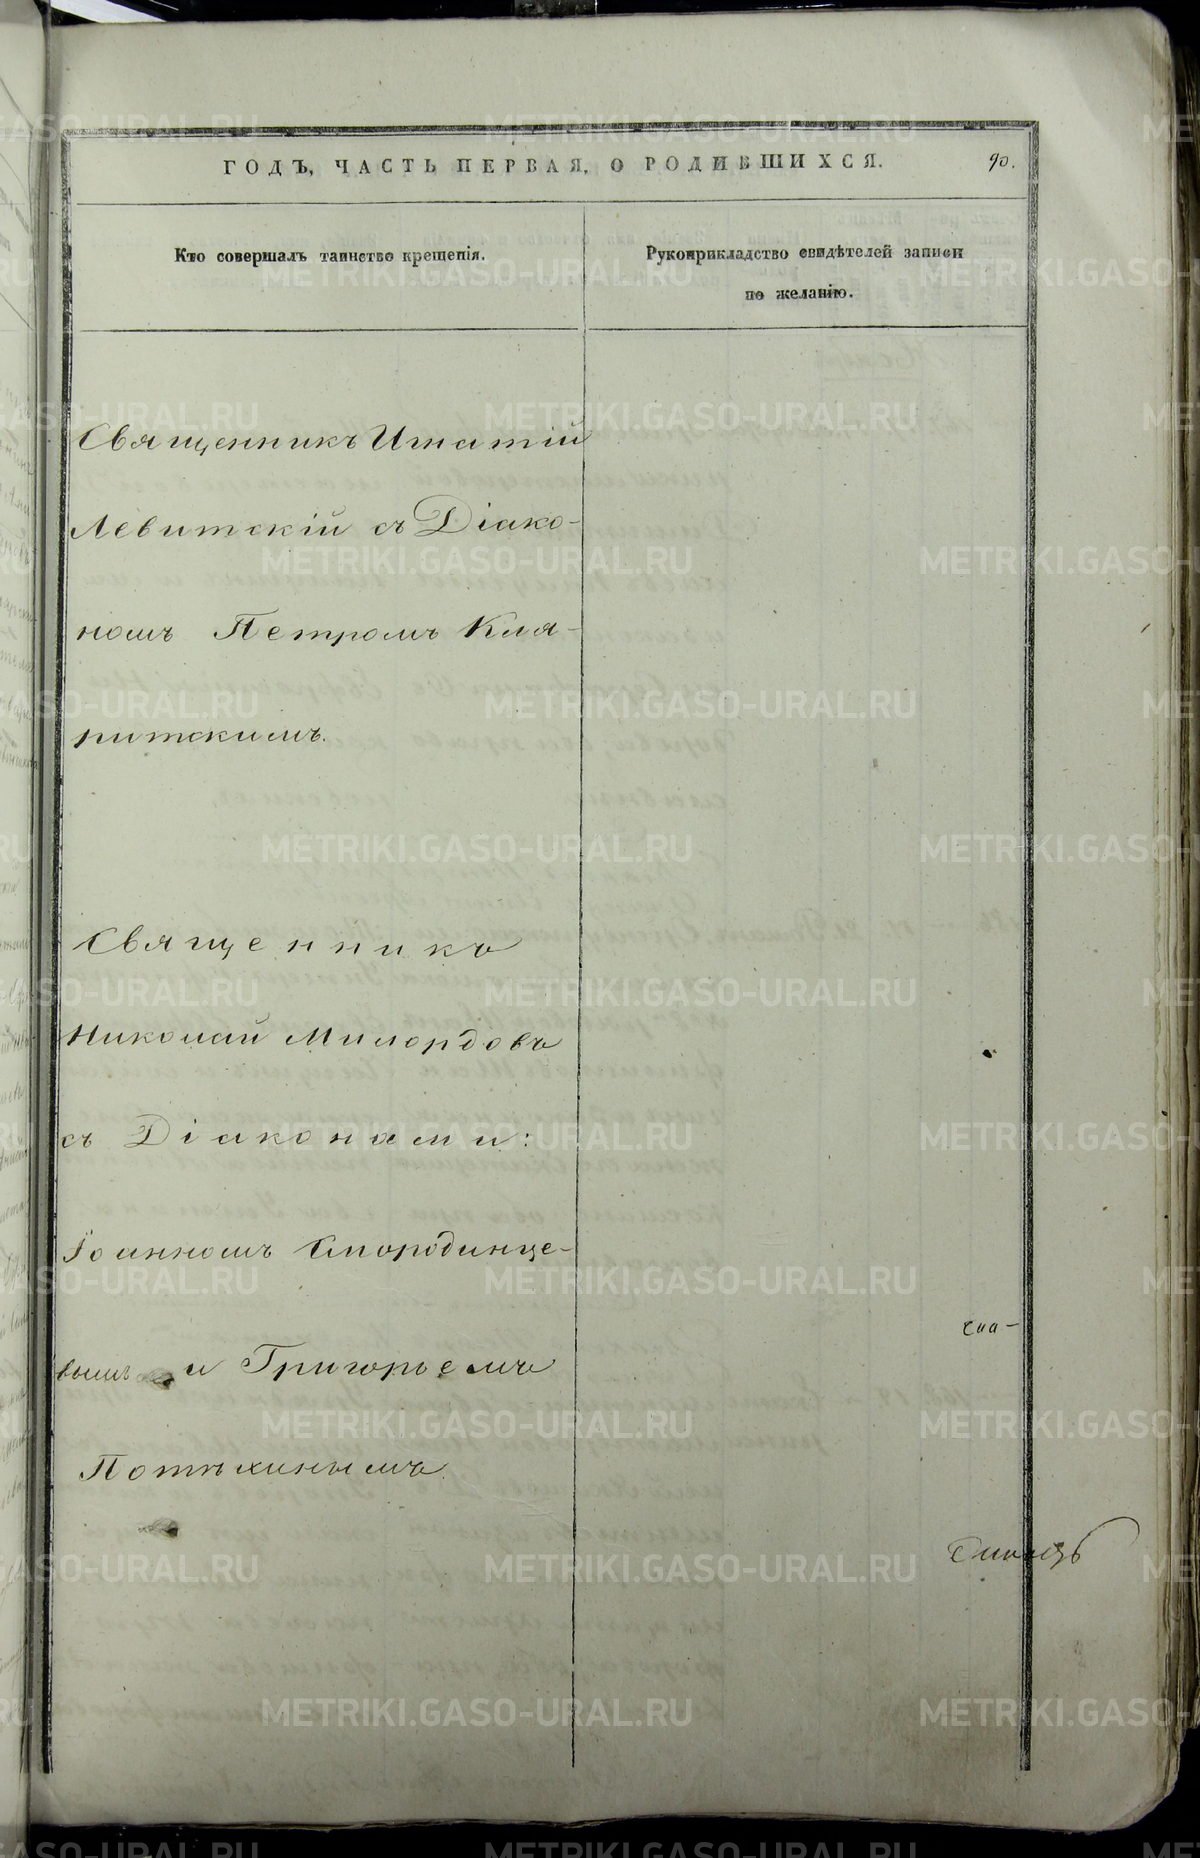 ГОДЪ, ЧАСТЬ ПЕРВАЯ, О РОДИВШИХСЯ.
90.
Кто совершалъ таинство крещенія.
Рукоприкладство свидѣтелей записи
по желанію.
Священникъ Игнатій
Левитскій съ Діако-
номъ Петромъ Кля-
ритскимъ.
Священникъ
Николай Милордовъ
съ Діаконами:
Іоанномъ Смородинце-
вымъ и Григорьемъ
Потѣхинымъ
METRIKI.GASO-URAL.RU